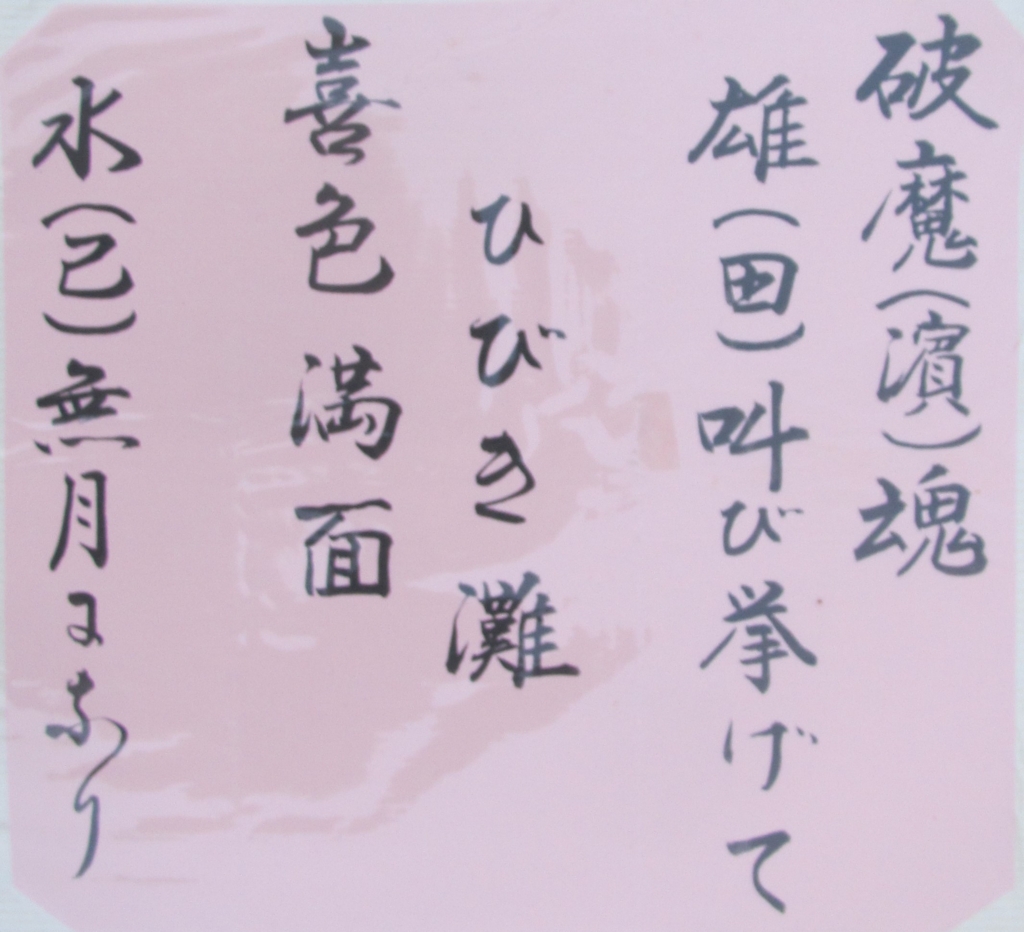 破魔(濱)魂
雄(田)叫び挙げて
ひびき灘
喜色満面
水(己)無月になり